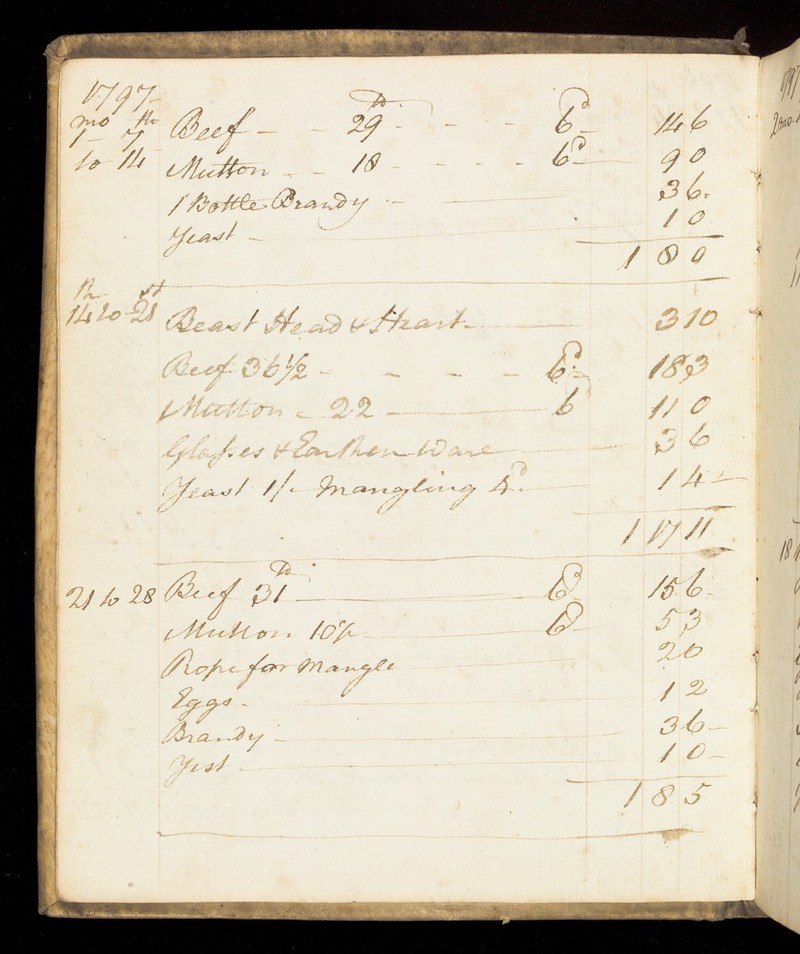 1797
mo 1 th 7 Beef 29 lb 6d 14 6
to 14 Mutton 18 6d 9 0
1 Bottle Brandy 3 6
Yeast 1 0
1 8 0
14 to 21 st Beast Head & Heart 3 10
Beef 36 1/2 6d 18 3
Mutton 22 6 11 0
Glasses & Earthen Ware 3 6
Yeast 1/- Mangling 4d 1 4
1 17 11
21 to 28 Beef 31 lb 6d 15 6
Mutton 10 1/2 6d 5 3
Rope for Mangle 2 0
Eggs 1 2
Brandy 3 6
Yest 1 0
1 8 5
1797
2 mo
18